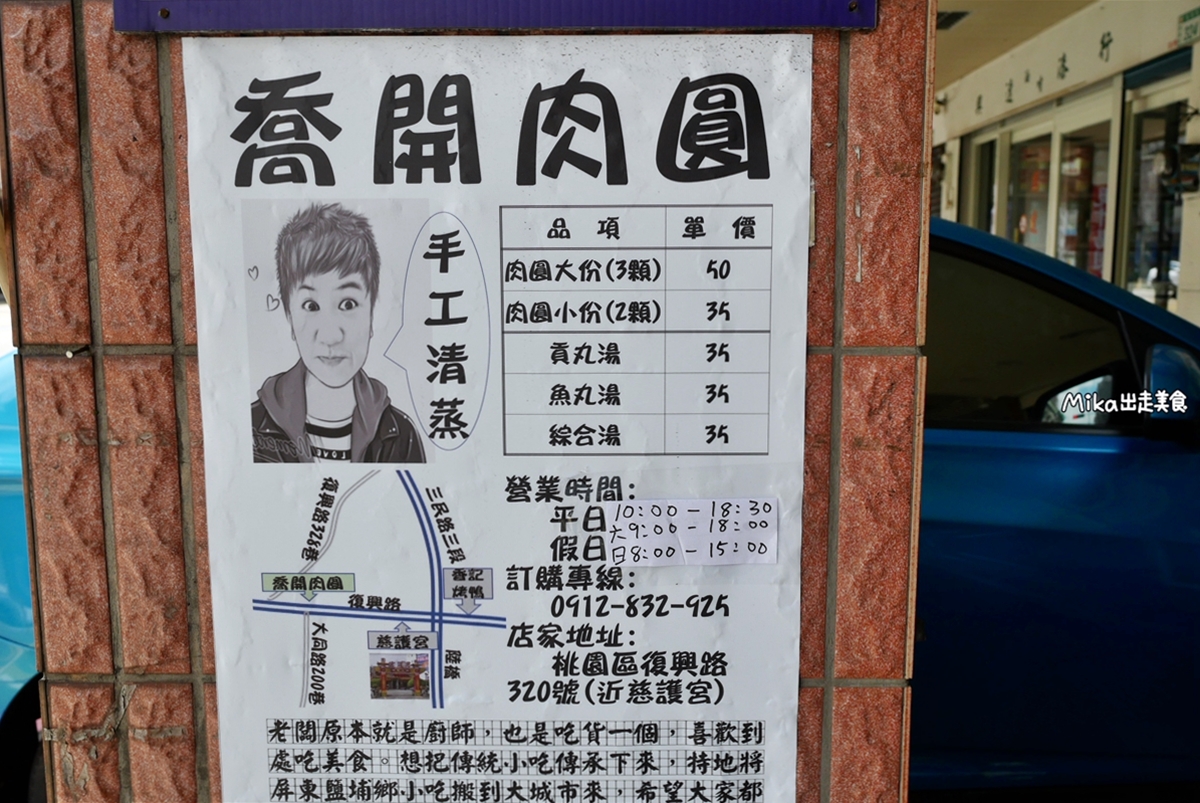 喬開肉圓
手工清蒸
品項 單價
肉圓大份(3顆) 50
肉圓小份(2顆) 35
貢丸湯 35
魚丸湯 35
綜合湯 35
營業時間:
平日 10:00 - 18:30
六9:00 - 18:00
假日 日8:00 - 15:00
訂購專線:
0912-832-925
店家地址:
桃園區復興路
320號(近慈護宮)
復興路328巷
三民路三段
喬開肉圓
香記
烤鴨
復興路
慈護宮
大同路200巷
陸橋
老闆原本就是廚師，也是吃貨一個，喜歡到
處吃美食。想把傳統小吃傳承下來，特地將
屏東鹽埔鄉小吃搬到大城市來，希望大家都
LOVE
Mika出走美食